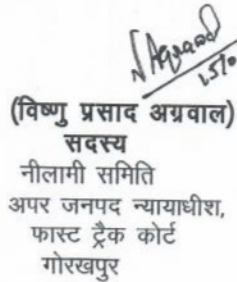 (विष्णु प्रसाद अग्रवाल)
सदस्य
नीलामी समिति
अपर जनपद न्यायाधीश,
फास्ट ट्रैक कोर्ट
गोरखपुर